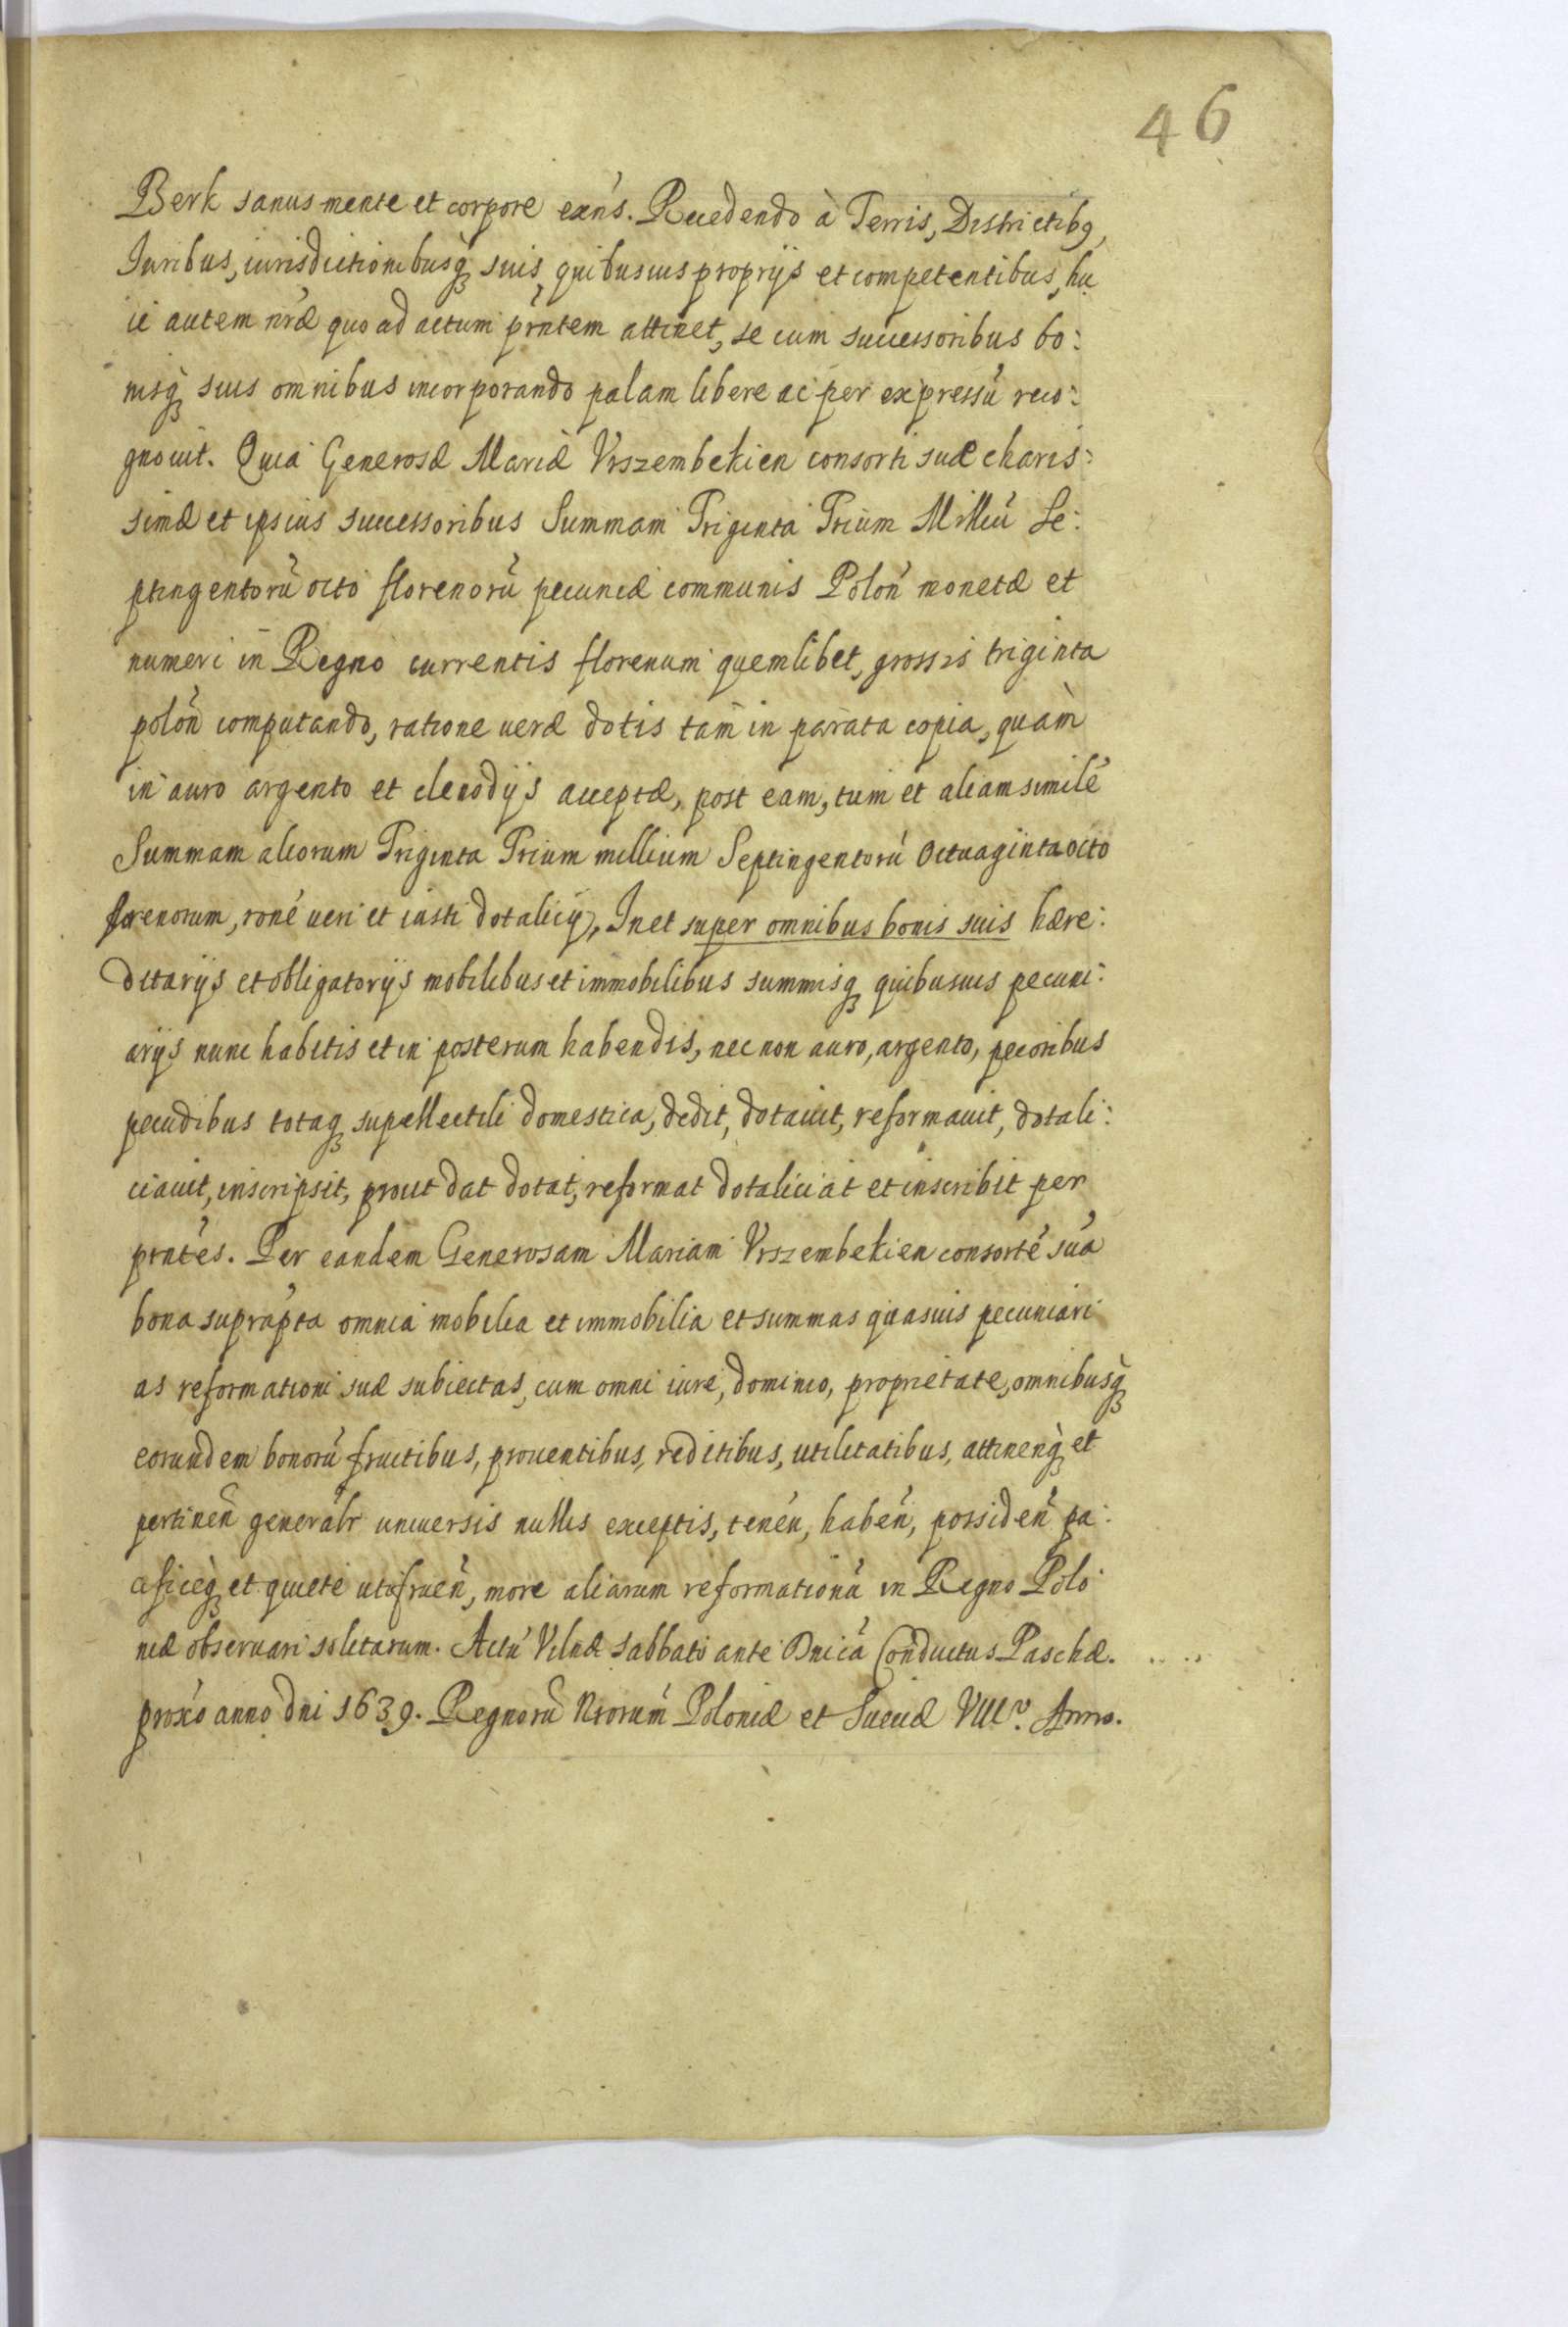 46
Berk sanus mente et corpore exńs. Recedendo à Terris, Districtibꝫ,
Iuribus, iurisdictionibusq̃ suis, quibusuis proprijs et competentibus, hu
ic autem nr̃æ quo ad actum pr̃ntem attinet, se cum successoribus bo:
nisq̃ suis omnibus incorporando palam libere ac per expressũ reco:
gnouit. Quia Generosæ Mariæ Vrszembekien consorti suæ charis:
simæ et ipsius successoribus Summam Triginta Trium Milliũ Se:
ptingentorũ octo florenorũ pecuniæ communis Poloñ monetæ et
numeri in Regno currentis florenum quemlibet, grossis triginta
poloñ computando, ratione veræ dotis tam in parata copia, quàm
in auro argento et clenodijs acceptæ, post eam, tum et aliam similẽ
Summam aliorum Triginta Trium millium Septingentorũ Octuaginta octo
florenorum, ronẽ ueri et iusti dotalicij, In et super omnibus bonis suis hære:
ditarijs et obligatorijs mobilibus et immobilibus summisq̃ quibusuis pecuni:
arijs nunc habitis et in posterum habendis, nec non auro, argento, pecoribus
pecudibus totaq̃ supellectili domestica, dedit, dotauit, reformauit, dotali:
ciauit, inscripsit, prout dat dotat, reformat dotaliciat et inscribit per
prñtes. Per eandem Generosam Mariam Vrszembekien consortẽ suã
bona suprap̃ta omnia mobilia et immobilia et summas quasuis pecuniari
as reformationi suæ subiectas, cum omni iure, dominio, proprietate, omnibusq̃
eorundem bonorũ fructibus, prouentibus, reditibus, utilitatibus, attinenq̃ et
pertineñ generalr̃ uniuersis nullis exceptis, teneñ, habeñ, possideñ pa:
cificeq̃ et quiete utifrueñ, more aliarum reformationũ in Regno Polo
niæ obseruari solitarum. Actũ Vilnæ Sabbato ante Dnicã Conductus Paschæ. ....
proxõ anno dni 1639. Regnorũ Nrorum Poloniæ et Sueciæ VIIº. Anno.